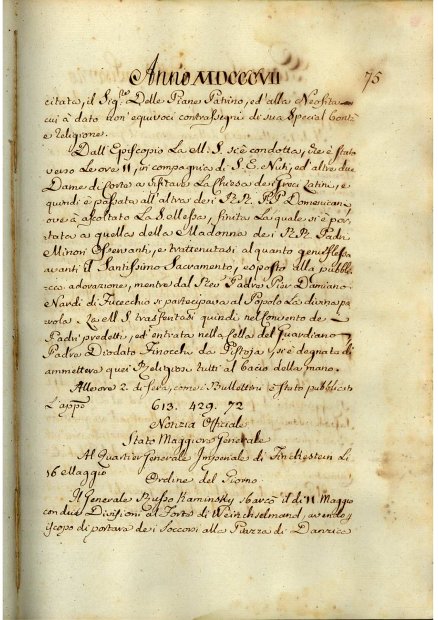 Anno MDCCCVII
75
citata, il Sig.re Delle Piane Patrino, ed'alla Neofita
cui à dato non'equivoci contrassegni di sua special bontà
e religione.
Dall'Episcopio La M: S. si è condotta, che è stato
verso Le ore 11, in compagnia di S. E. Nuti, ed'altre due
Dame di Corte a visitare La Chiesa dei Greci Latini, e
quindi è passata all'altra dei RR. PP. Domenicani
ove à ascoltato La S. Messa, finita La quale si è por-
tata a quella della Madonna dei RR. Padri
Minori Osservanti, e trattenutasi alquanto genuflessa
avanti il Santissimo Sacramento, esposto alla pubbli-
ca adorazione, mentre dal Padre Pier Damiano
Nardi di Fucecchio si partecipava al Popolo La divina pa-
rola. La M: S. trasferitasi quindi nel Convento de
Padri predetti, ed'entrata nella Cella del Guardiano
Padre Diodato Finocchi da Pistoja, si è degnata di
ammettere quei Religiosi tutti al bacio della mano.
Alle ore 2. di sera, come i Bullettini è stato pubblicato
L'appo
613. 429. 72
Notizia Officiale
Stato Maggiore Generale
Al Quartier Generale Imperiale di Finckestein Li
16 Maggio
Ordine del Giorno
Il Generale Russo Kaminsky sbarcò il dì 11 Maggio
con due Divisioni al Forte di Weirchselmand, avendo
iscopo di portare dei soccorsi alla Piazza di Danzica